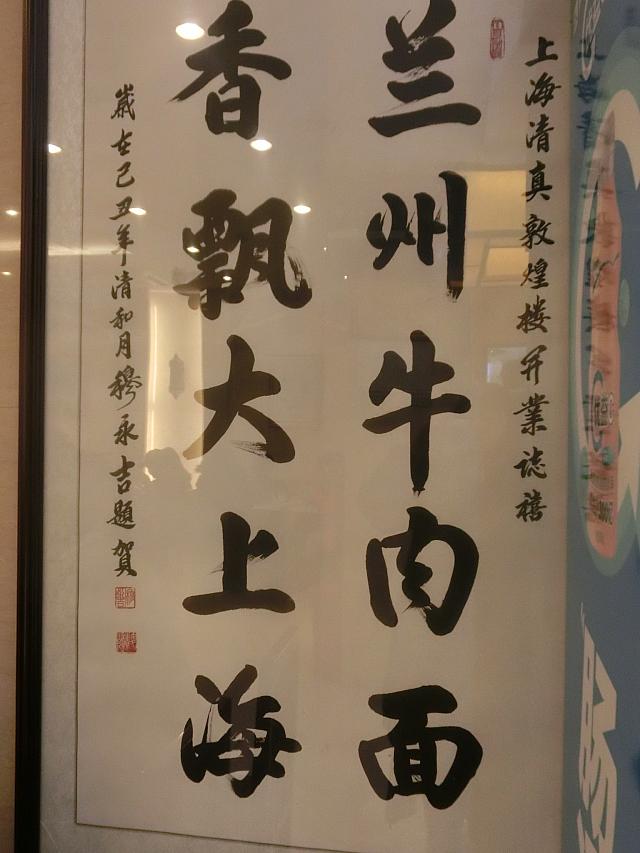 上海清真敦煌楼开業誌禧
兰州牛肉面
香飘大上海
歲在己丑年清和月穆永吉題賀
畅